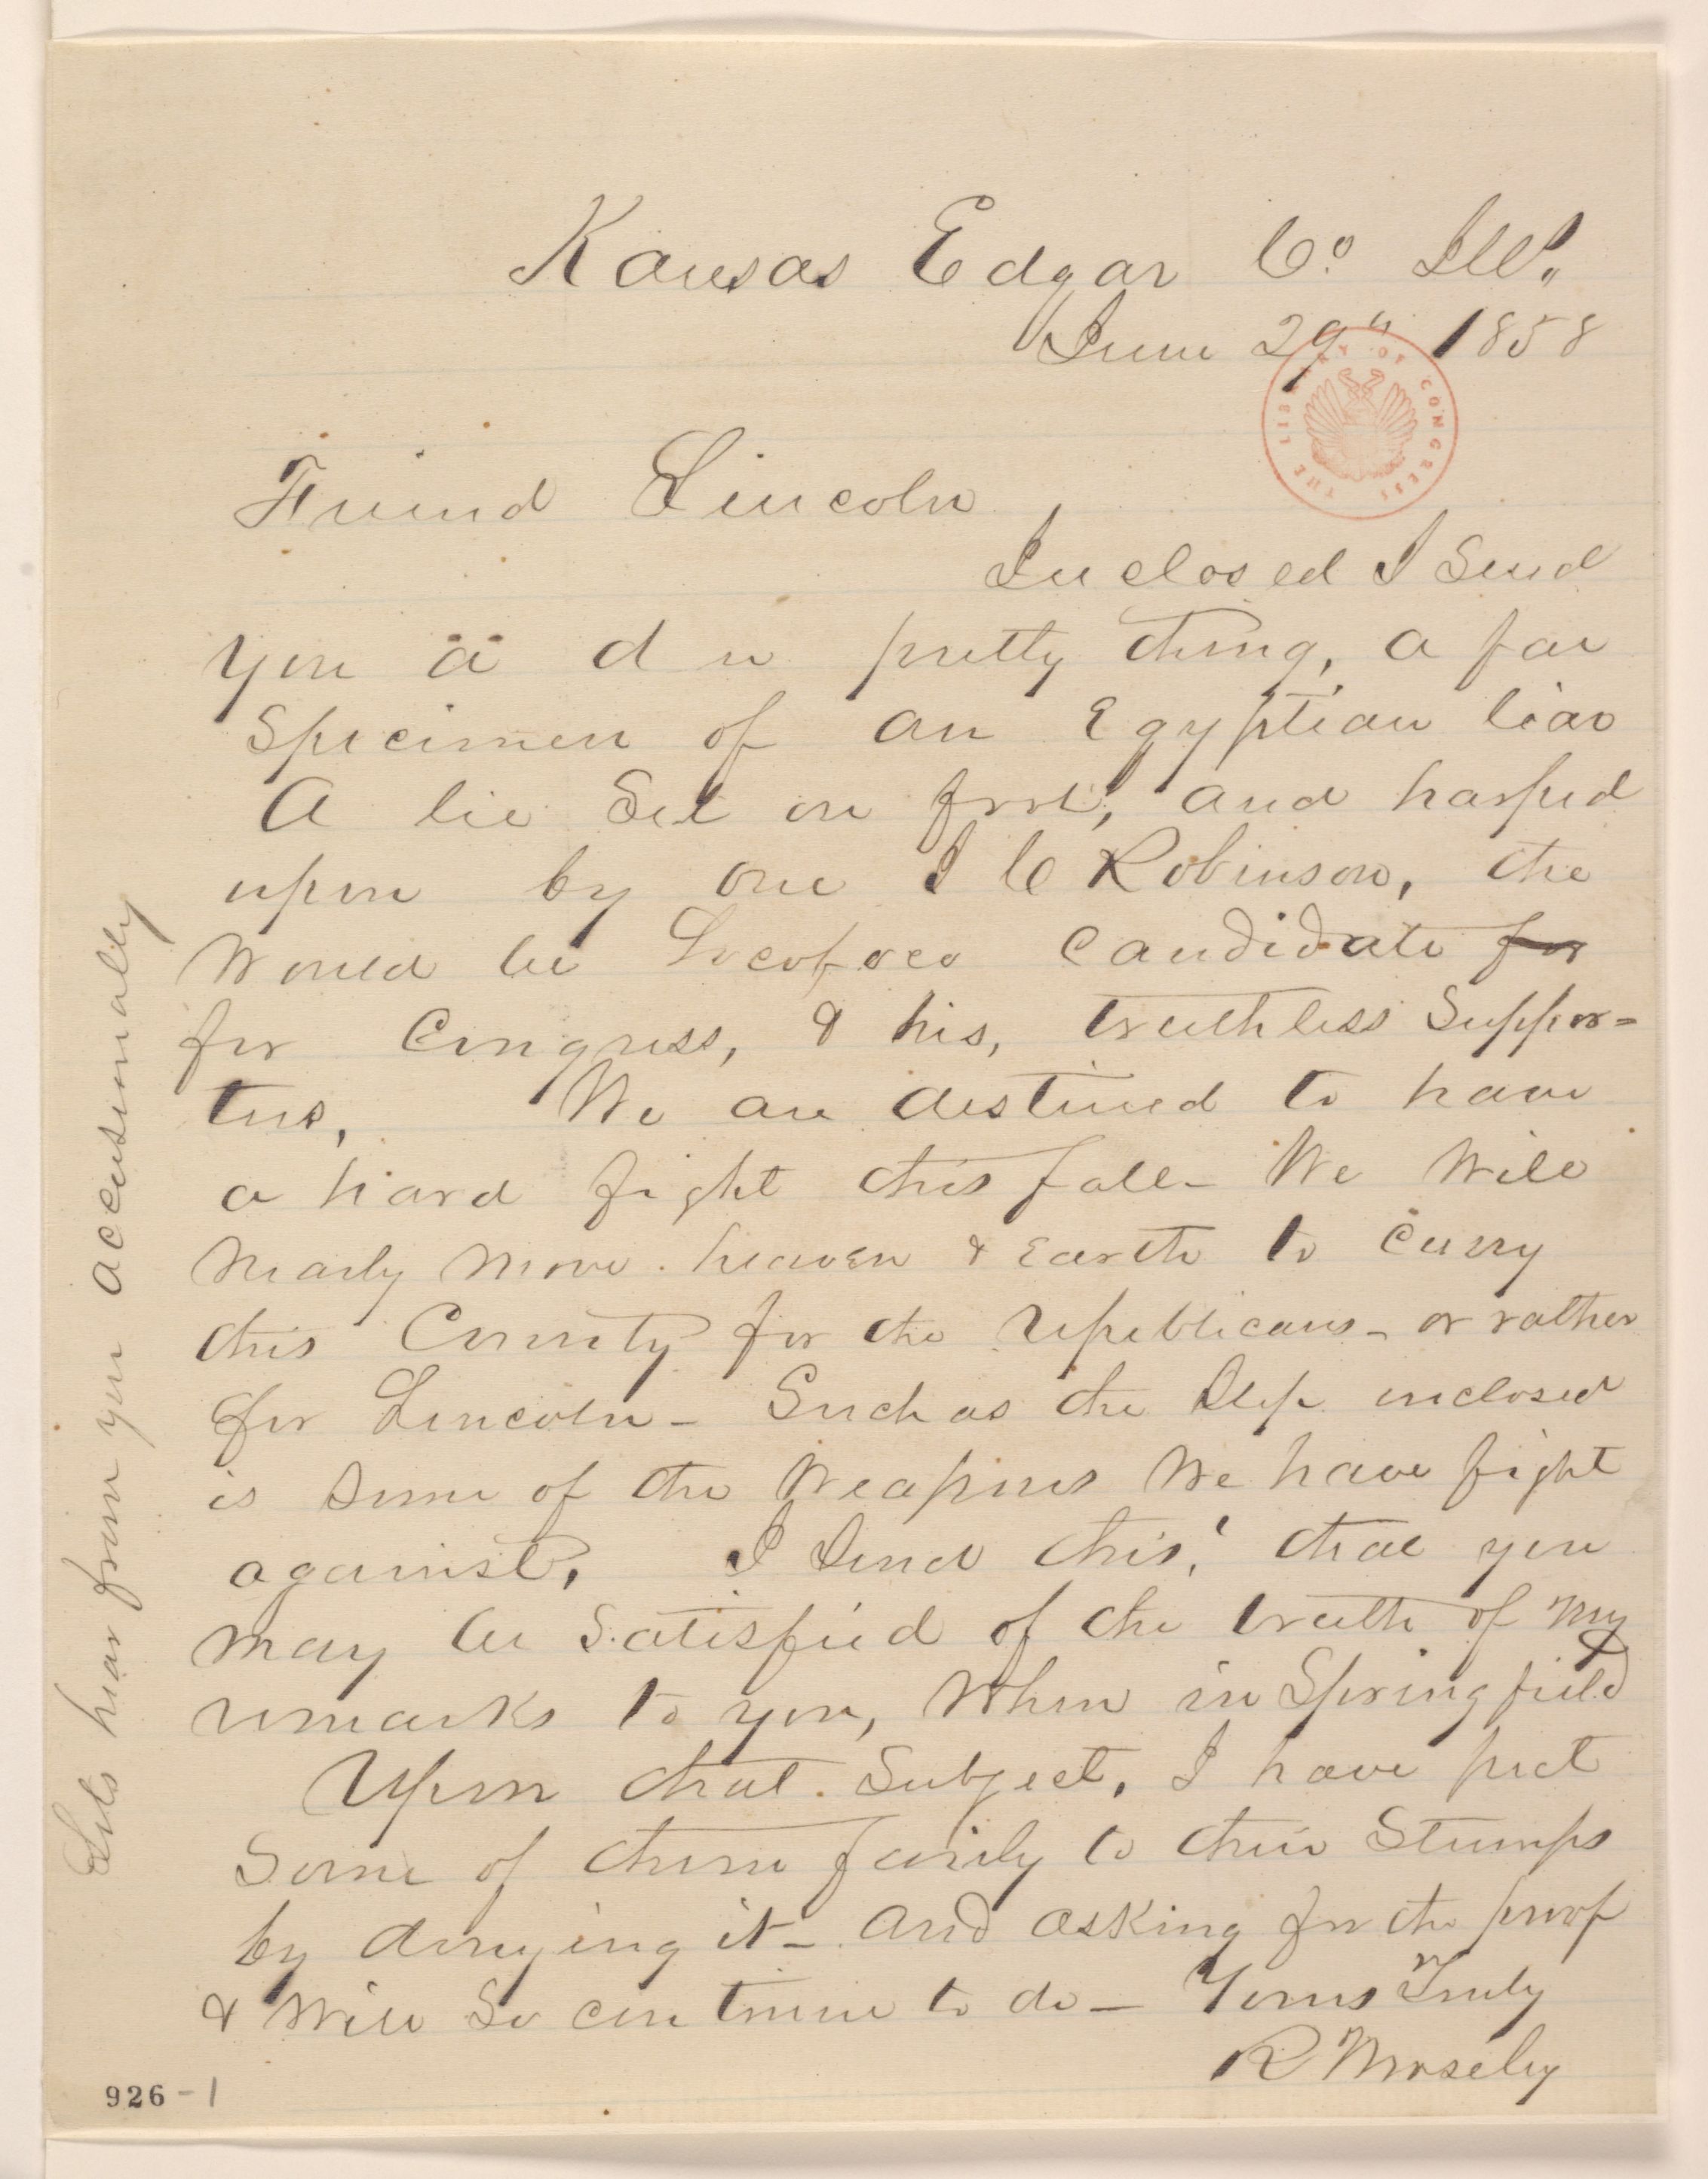 Kansas Edgar Co. Ills.
June 29" 1858
THE LIBRARY OF CONGRESS
Friend Lincoln
Inclosed I Send
you a d n pretty thing, a fair
Specimen of an Egyptian liar
A lie Set on foot, and harped
upon by one J C Robinson, the
Would be Locofoco Candidate for
for Congress, & his, truthless Suppor=
ters, We are destined to have
a hard fight this fall - We Will
Nearly Move heaven & Earth to Carry
this County for the republicans - or rather
for Lincoln - Such as the Slip inclosed
is Some of the Weapons We have fight
against, I Send this, that you
may be Satisfied of the truth of my
remarks to you, When in Springfield
Upon that Subject, I have put
Some of them fairly to their Stumps
by denying it - and asking for the proof
& Will So continue to do - Yours Truly
R Mosely
Lets hear from you accasionally
926-1